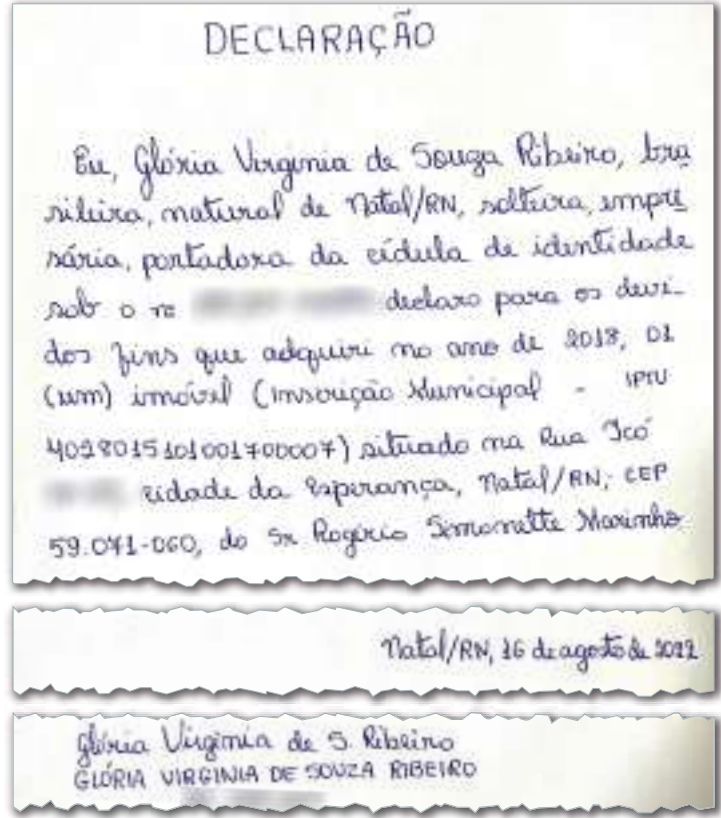 DECLARAÇÃO
Eu, Glória Virginia de Souza Ribeiro, bra
sileira, natural de Natal/RN, solteira, empre
sária, portadora da cédula de identidade
sob o nº declaro para os devi-
dos fins que adquiri no ano de 2018, 01
(um) imóvel (Inscrição Municipal - IPTU
4028015101001700007) situado na Rua Icó
cidade da Esperança, Natal/RN; CEP
59.071-060, do Sr Rogério Simonette Marinho
Natal/RN, 16 de agosto de 2022
Glória Virginia de S. Ribeiro
GLÓRIA VIRGINIA DE SOUZA RIBEIRO